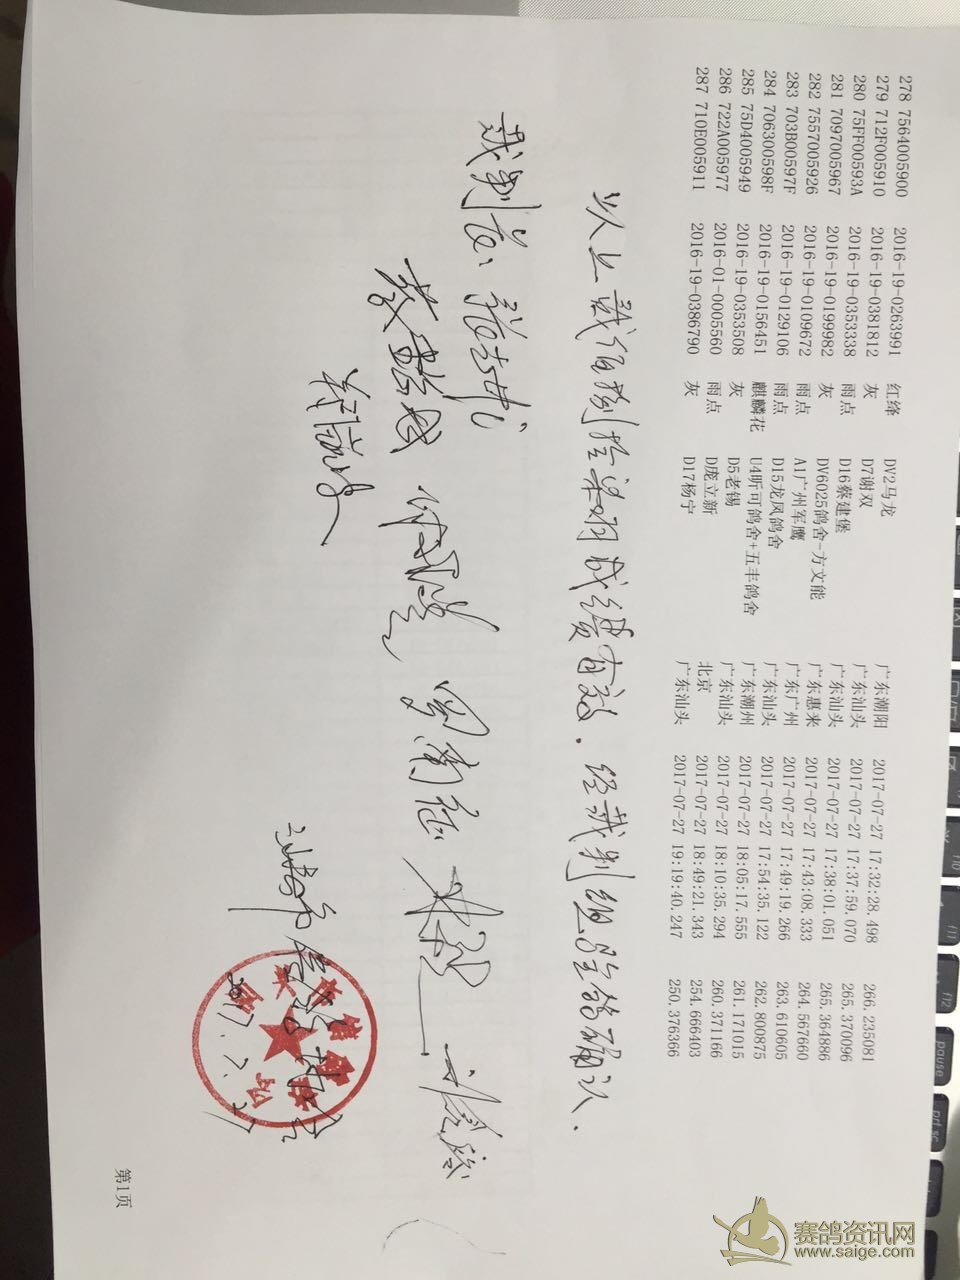 278 7564005900 2016-19-0263991 红绛 DV2马龙 广东潮阳 2017-07-27 17:32:28.498 266.235081
279 712F005910 2016-19-0381812 灰 D7谢双 广东汕头 2017-07-27 17:37:59.070 265.370096
280 75FF00593A 2016-19-0353338 雨点 D16蔡建堡 广东汕头 2017-07-27 17:38:01.051 265.364886
281 7097005967 2016-19-0199982 灰 DV6025鸽舍-方文能 广东惠来 2017-07-27 17:43:08.333 264.567660
282 7557005926 2016-19-0109672 雨点 A1广州军鹰 广东广州 2017-07-27 17:49:19.266 263.610605
283 703B00597F 2016-19-0129106 雨点 D15龙凤鸽舍 广东汕头 2017-07-27 17:54:35.122 262.800875
284 706300598F 2016-19-0156451 麒麟花 U4昕可鸽舍+五丰鸽舍 广东潮州 2017-07-27 18:05:17.555 261.171015
285 75D4005949 2016-19-0353508 灰 D5老锡 广东汕头 2017-07-27 18:10:35.294 260.371166
286 722A005977 2016-01-0005560 雨点 D庞立新 北京 2017-07-27 18:49:21.343 254.666403
287 710E005911 2016-19-0386790 灰 D17杨宁 广东汕头 2017-07-27 19:19:40.247 250.376366
以上 成绩有效．经裁判组 确认．
裁判长：
2017.7.27
第1页
赛鸽资讯网
www.saige.com